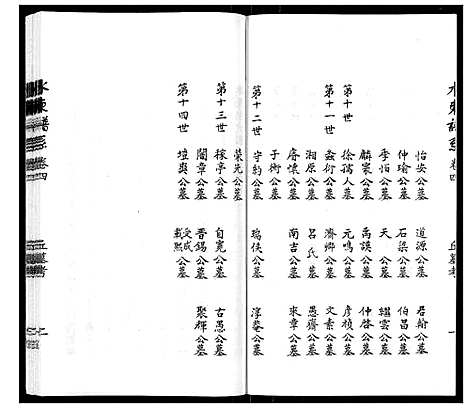 水東譜系 卷四
丘墓考
一
怡安公墓 道源公墓 君翰公墓
仲瑜公墓 石梁公墓 伯昌公墓
季怕公墓 天 公墓 縉雲公墓
麟寰公墓 禹謨公墓 仲啓公墓
第十世 徐孺人墓 元鳴公墓 彦楨公墓
第十一世 淼衍公墓 濟卿公墓 文素公墓
湘原公墓 呂氏墓 愚齋公墓
公墓 南吉公墓 來章公墓
子衎公墓
第十二世 守約公墓 瑞侯公墓 淳菴公墓
榮先公墓
第十三世 稼亭公墓 自寛公墓 古愚公墓
闇章公墓 晋錫公墓 聚輝公墓
第十四世 愷與公墓 受成 載熙公墓
水東譜系 卷四
丘墓考
上